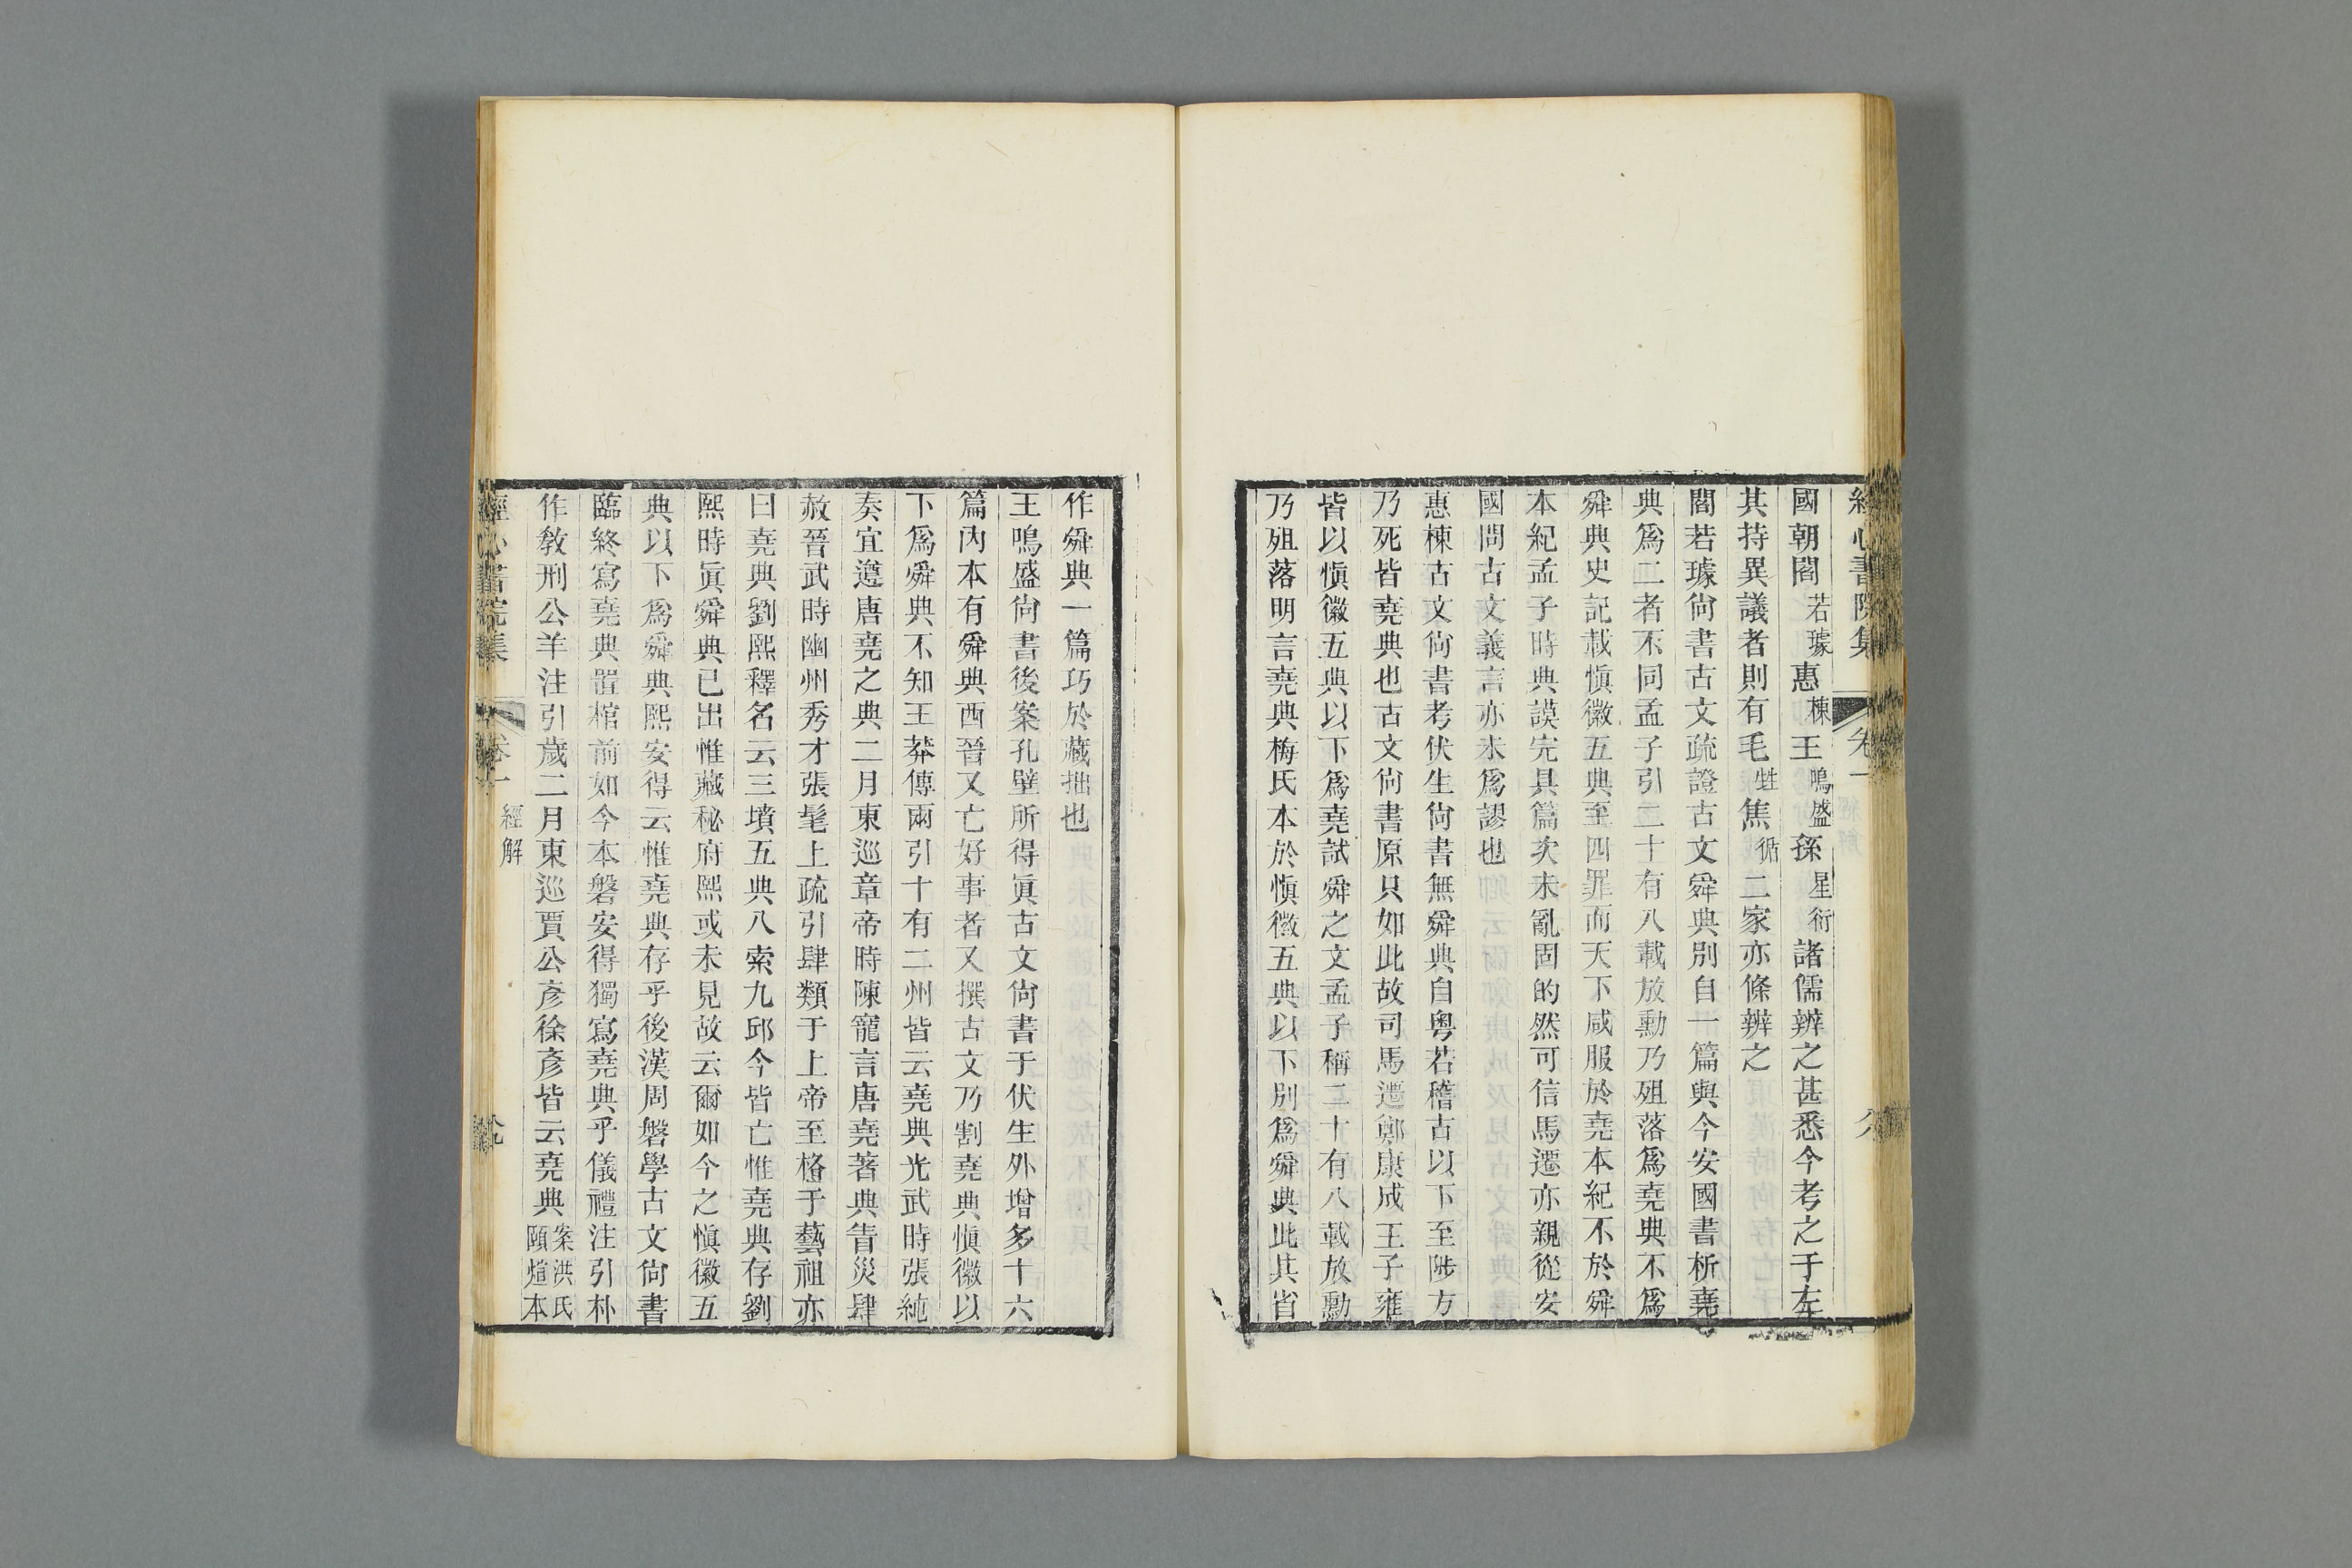 經心書院集 卷一 經解
國朝閻若璩惠棟王鳴盛孫星衍諸儒辨之甚悉今考之于左
其持異議者則有毛甡焦循二家亦條辨之
閻若璩尙書古文疏證古文舜典別自一篇與今安國書析堯
典爲二者不同孟子引二十有八載放勳乃殂落爲堯典不爲
舜典史記載愼徽五典至四罪而天下咸服於堯本紀不於舜
本紀孟子時典謨完具篇次未亂固的然可信馬遷亦親從安
國問古文義言亦未爲謬也
惠棟古文尙書考伏生尙書無舜典自粤若稽古以下至陟方
乃死皆堯典也古文尙書原只如此故司馬遷鄭康成王子雍
皆以愼徽五典以下爲堯試舜之文孟子稱二十有八載放勳
乃殂落明言堯典梅氏本於愼徽五典以下別爲舜典此其省
作舜典一篇巧於藏拙也
王鳴盛尙書後案孔壁所得眞古文尙書于伏生外增多十六
篇內本有舜典西晉又亡好事者又撰古文乃割堯典愼徽以
下爲舜典不知王莽傳兩引十有二州皆云堯典光武時張純
奏宜遵唐堯之典二月東巡章帝時陳寵言唐堯著典眚災肆
赦晉武時幽州秀才張髦上疏引肆類于上帝至格于藝祖亦
曰堯典劉熙釋名云三墳五典八索九邱今皆亡惟堯典存劉
熙時眞舜典已出惟藏秘府熙或未見故云爾如今之愼徽五
典以下爲舜典熙安得云惟堯典存乎後漢周磐學古文尙書
臨終寫堯典置棺前如今本磐安得獨寫堯典乎儀禮注引朴
作敎刑公羊注引歲二月東巡賈公彥徐彥皆云堯典案洪氏頤煊本
經心書院集 卷一 經解